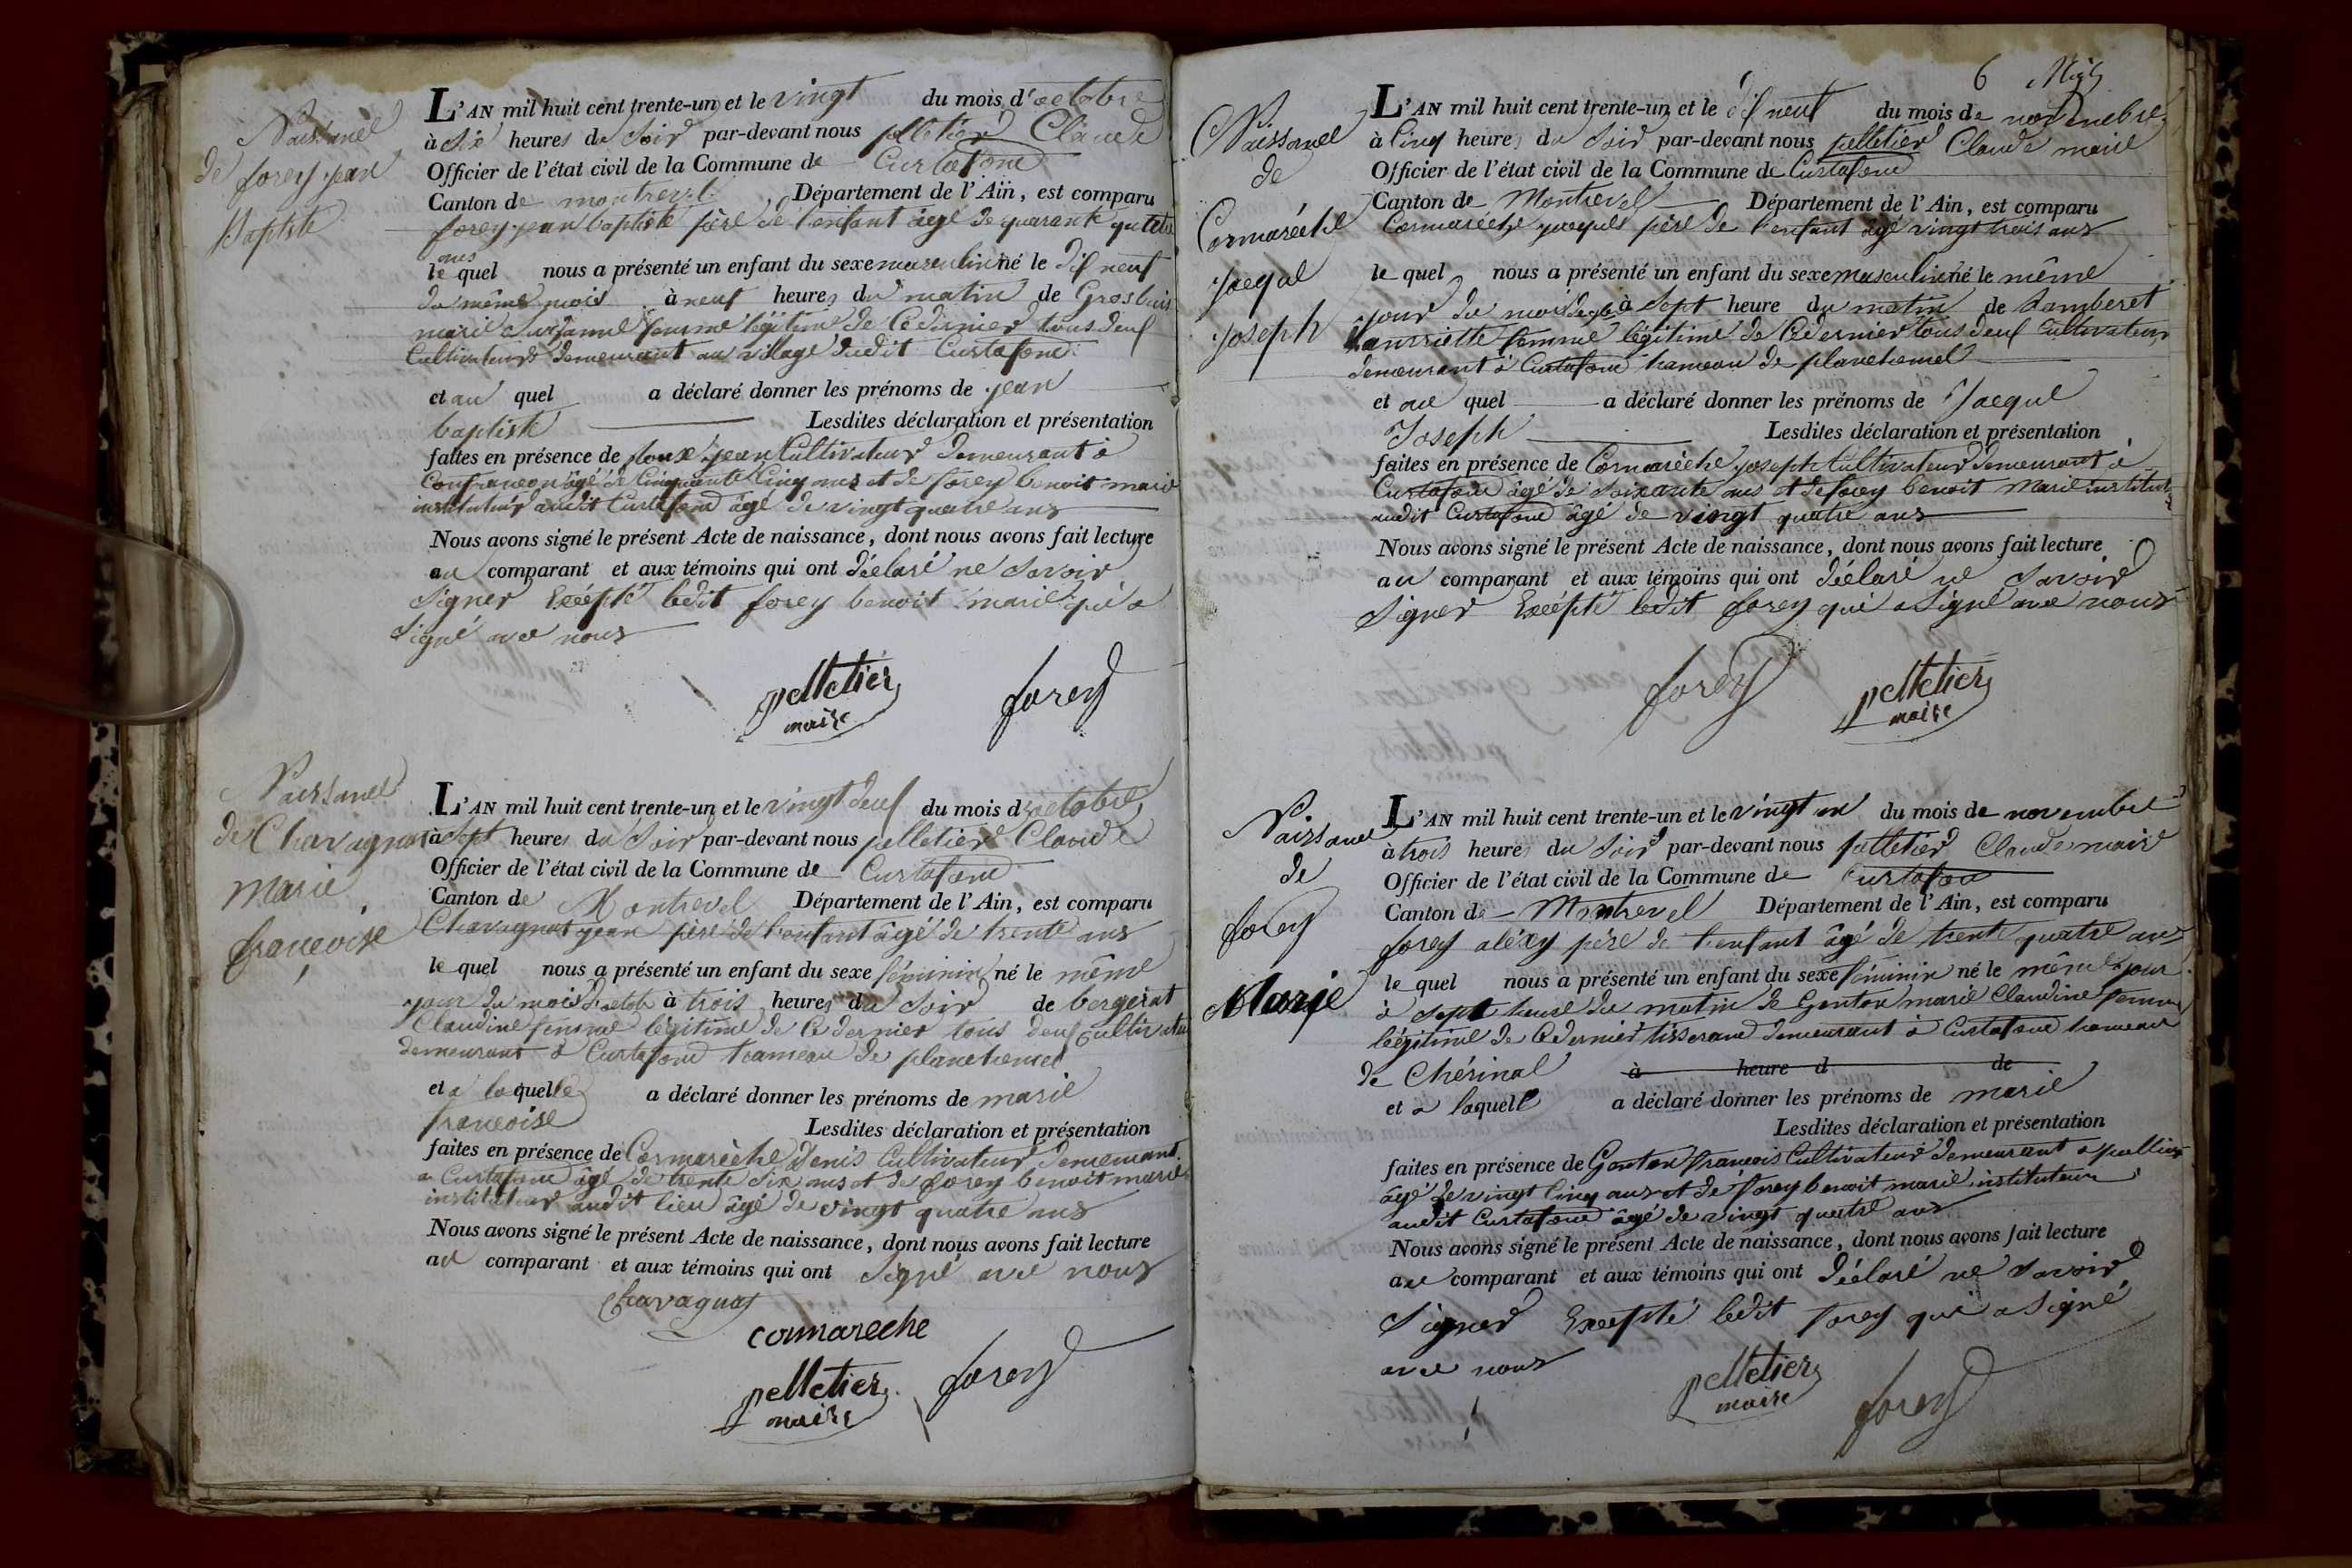 Naissance
de forey jean
Baptiste
L'AN mil huit cent trente-un et le vingt du mois d'octobre
à six heures du soir par-devant nous pelletier Claude
Officier de l'état civil de la Commune de Curtafond
Canton de montrevel Département de l'Ain, est comparu
forey jean baptiste père de l'enfant âgé de quarante quatre
ans
le quel nous a présenté un enfant du sexe masculin né le dix neuf
du même mois à neuf heures du matin de Grosbuis
marie Suzanne femme légitime de Ce dernier tous deux
Cultivateurs demeurant au village dudit Curtafond
et au quel a déclaré donner les prénoms de jean
baptiste Lesdites déclaration et présentation
faites en présence de jean Cultivateur demeurant à
Confrançon âgé de Cinquante Cinq ans et de forey benoit marie
instituteur audit Curtafond âgé de vingt quatre ans
Nous avons signé le présent Acte de naissance, dont nous avons fait lecture
au comparant et aux témoins qui ont déclaré ne savoir
signer Excépté ledit forey benoit marie qui a
signé avec nous
pelletier forey
maire
Naissance
de Chavagnat
Marie
françoise
L'AN mil huit cent trente-un et le vingt deux du mois d'octobre
à sept heures du soir par-devant nous pelletier Claude
Officier de l'état civil de la Commune de Curtafond
Canton de Montrevel Département de l'Ain, est comparu
Chavagnat jean père de l'enfant âgé de trente ans
le quel nous a présenté un enfant du sexe féminin né le même
jour du mois d'octobre à trois heures du soir de bergerat
Claudine femme légitime de Ce dernier tous deux Cultivateurs
demeurant à Curtafond hameau de planchemel
et à laquelle a déclaré donner les prénoms de marie
françoise Lesdites déclaration et présentation
faites en présence de Cormarèche Denis Cultivateur demeurant
a Curtafond âgé de trente six ans et de forey benoit marie
instituteur audit lieu âgé de vingt quatre ans
Nous avons signé le présent Acte de naissance, dont nous avons fait lecture
au comparant et aux témoins qui ont Signé avec nous
Chavagnat
cormareche
pelletier forey
maire
6
Naissance
de
Cormarêche
Jacque
Joseph
L'AN mil huit cent trente-un et le dix neuf du mois de novembre
à Cinq heures du soir par-devant nous pelletier Claude maire
Officier de l'état civil de la Commune de Curtafond
Canton de Montrevel Département de l'Ain, est comparu
Cormarêche jacques père de l'enfant âgé vingt trois ans
le quel nous a présenté un enfant du sexe masculin né le même
jour du mois à sept heure du matin de Damberet
hanrriette femme légitime de Ce dernier tous deux Cultivateurs
demeurant à Curtafond hameau de planchemel
et au quel a déclaré donner les prénoms de Jacque
Joseph Lesdites déclaration et présentation
faites en présence de Cormarêche joseph Cultivateur demeurant à
Curtafond âgé de soixante ans et de forey benoit Marie
audit Curtafond âgé de vingt quatre ans
Nous avons signé le présent Acte de naissance, dont nous avons fait lecture
au comparant et aux témoins qui ont déclaré ne savoir
signer Excépté ledit forey qui a signé avec nous
forey pelletier
maire
Naissance
de
forey
Marie
L'AN mil huit cent trente-un et le vingt un du mois de novembre
à trois heures du soir par-devant nous pelletier Claude maire
Officier de l'état civil de la Commune de Curtafon
Canton de Montrevel Département de l'Ain, est comparu
forey aléxy père de l'enfant âgé de trente quatre ans
le quel nous a présenté un enfant du sexe féminin né le même jour
à sept heure du matin de Gonton marie Claudine femme
légitime de Ce dernier tisserand demeurant à Curtafond hameau
de Chérinal à heure d de
et à laquelle a déclaré donner les prénoms de marie
Lesdites déclaration et présentation
faites en présence de Gonton françois Cultivateur demeurant a
âgé de vingt Cinq ans et de forey benoit marie instituteur
audit Curtafond âgé de vingt quatre ans
Nous avons signé le présent Acte de naissance, dont nous avons fait lecture
au comparant et aux témoins qui ont déclaré ne savoir
signer Excepté ledit forey qui a signé
avec nous
pelletier forey
maire